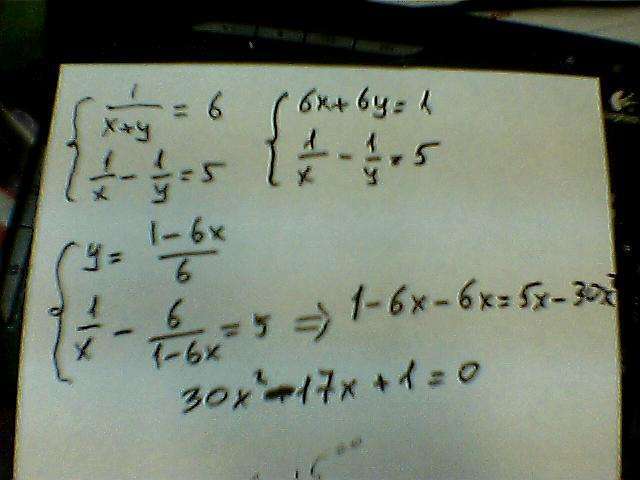 1/(x+y) = 6
1/x - 1/y = 5
6x + 6y = 1
1/x - 1/y = 5
y = (1-6x)/6
1/x - 6/(1-6x) = 5 ⇒ 1-6x-6x = 5x-30x²
30x² - 17x + 1 = 0